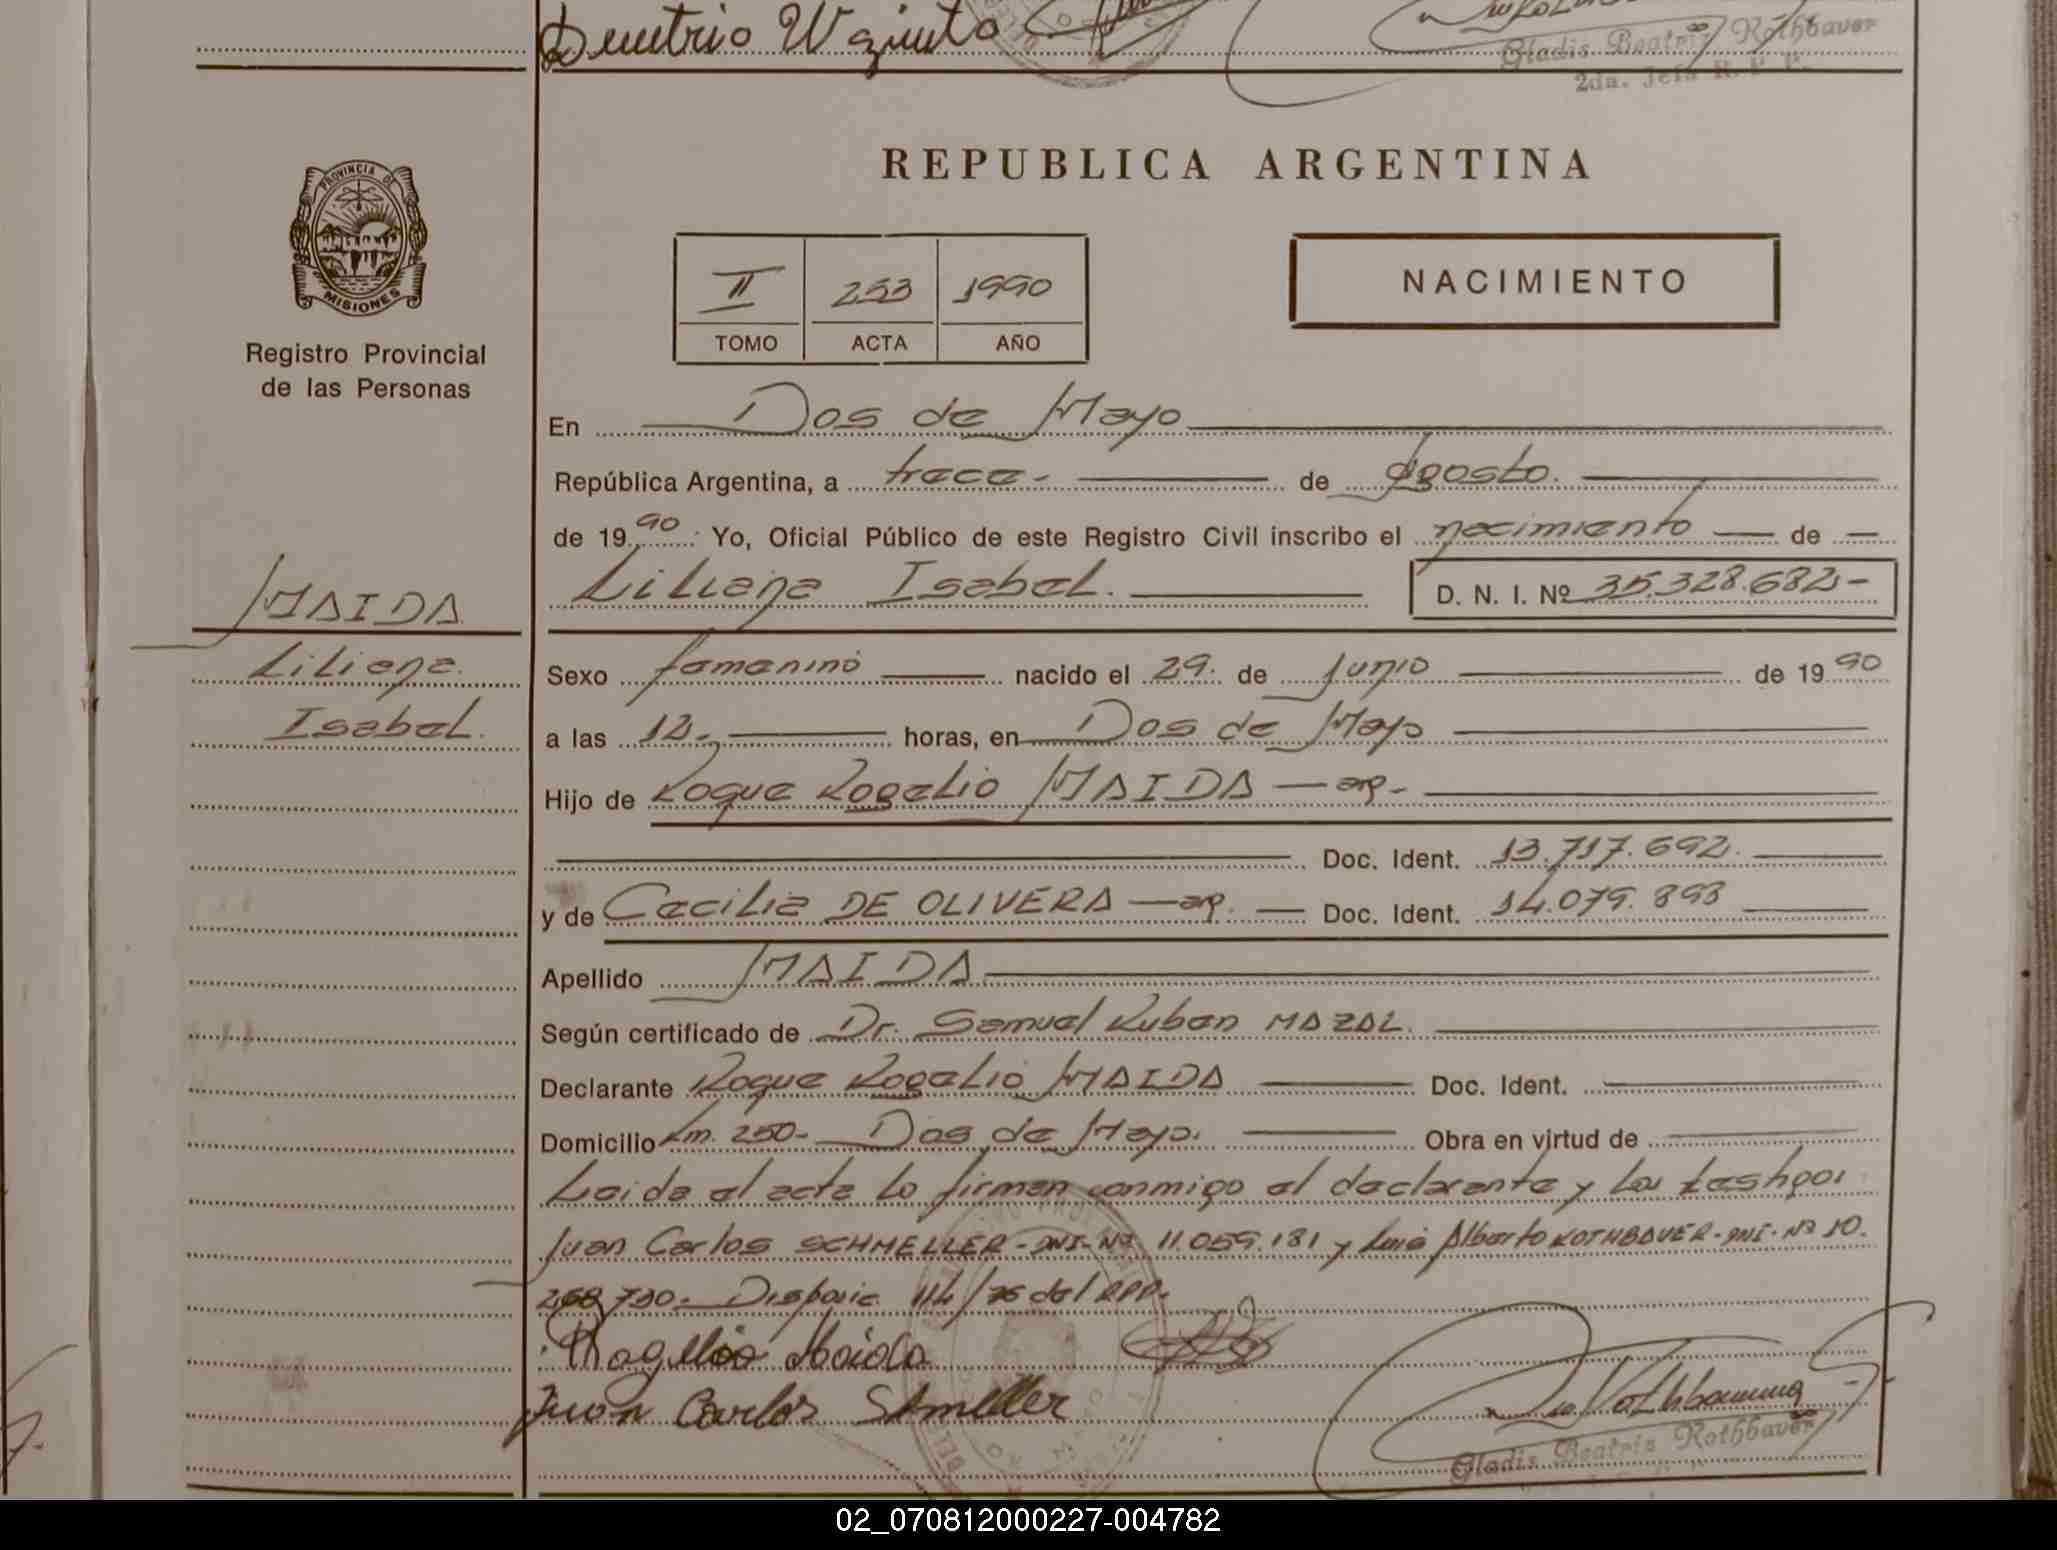 Demetrio
Gladis Beatriz Rothbaver
2da. Jefa R. P. P.
PROVINCIA DE
MISIONES
Registro Provincial
de las Personas
REPUBLICA ARGENTINA
II 253 1990
TOMO ACTA AÑO
NACIMIENTO
En Dos de Mayo
República Argentina, a trece.- de Agosto.
de 19 90 Yo, Oficial Público de este Registro Civil inscribo el nacimiento de
Liliana Isabel. D. N. I. Nº 35.328.682.-
MAIDA
Liliana
Isabel.
Sexo femenino nacido el 29. de junio de 19 90
a las 12.- horas, en Dos de Mayo
Hijo de Roque Rogelio MAIDA — arg.-
Doc. Ident. 13.717.692.
y de Cecilia DE OLIVERA — arg. — Doc. Ident. 14.079.893
Apellido MAIDA
Según certificado de Dr. Samuel Ruben MAZAL.
Declarante Roque Rogelio MAIDA Doc. Ident.
Domicilio Km. 250- Dos de Mayo. Obra en virtud de
Leida el acta lo firman conmigo el declarante y los testigos
Juan Carlos SCHMELLER - DNI - Nº 11.059.181 y Luis Alberto ROTHBAVER - DNI - Nº 10.
268.730.- Disposic. 114/75 del RPP.
Rogelio Maida
Juan Carlos Shmeller
Gladis Beatriz Rothbaver
02_070812000227-004782